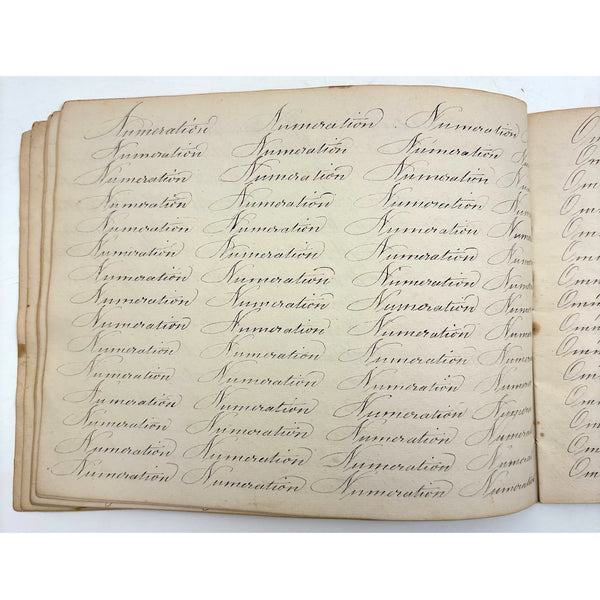 Numeration Numeration Numeration
Numeration Numeration Numeration Num
Numeration Numeration Numeration Num
Numeration Numeration Numeration Num
Numeration Numeration Numeration Nume
Numeration Numeration Numeration Nume
Numeration Numeration Numeration Numer
Numeration Numeration Numeration Numer
Numeration Numeration Numeration Numer
Numeration Numeration Numeration Numer
Numeration Numeration Numeration Numer
Numeration Numeration Numeration Numera
Numeration Numeration Numeration Numera
Numeration Numeration Numeration Numera
Numeration Numeration Numeration Numerati
Om
Om
Om
Om
Om
Om
Om
Omn
Omn
Omn
Omn
Omn
Omn
Omn
Omn